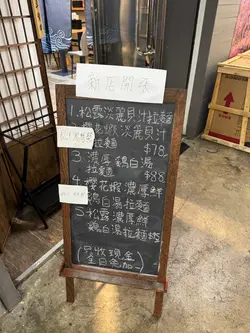 新店開張
1. 松露淡麗貝汁拉麵
淡麗貝汁
拉麵 $78
3. 濃厚鷄白湯
拉麵 $88
4. 櫻花蝦濃厚鮮
鷄白湯拉麵
5. 松露濃厚鮮
鷄白湯拉麵
(只收現金
全日免加一)